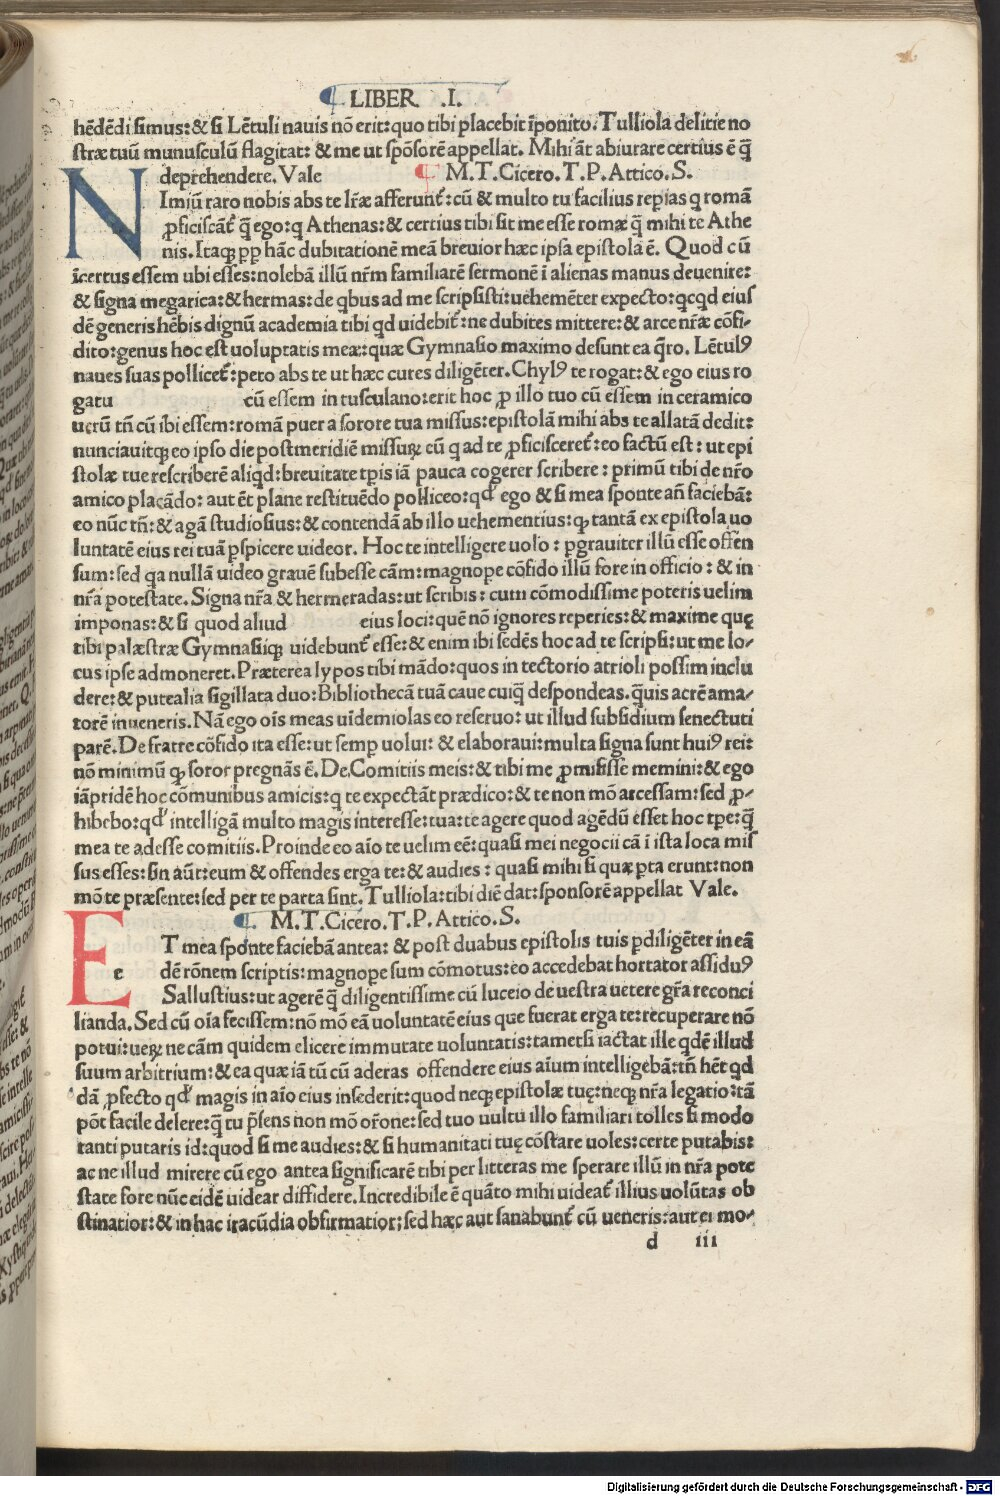 LIBER .I.
hēdēdi simus: & si Lētuli nauis nō erit: quo tibi placebit īponito. Tulliola delitie no
stræ tuū munusculū flagitat: & me ut spōsorē appellat. Mihi āt abiurare certius ē q̄
deprehendere. Vale M.T.Cicero.T.P.Attico.S.
NImiū raro nobis abs te lr̄æ afferunt̄: cū & multo tu facilius repias q romā
ꝓficiscāt̄ q̄ ego: q Athenas: & certius tibi sit me esse romæ q̄ mihi te Athe
nis. Itaqꝫ ꝓp hāc dubitationē meā breuior hæc ipsa epistola ē. Quod cū
īcertus essem ubi esses: nolebā illū nr̄m familiarē sermonē ī alienas manus deuenire:
& signa megarica: & hermas: de qbus ad me scripsisti: uehemēter expecto: qcqd eius
dē generis hēbis dignū academia tibi qd uidebit̄: ne dubites mittere: & arce nr̄æ cōfi-
dito: genus hoc est uoluptatis meæ: quæ Gymnasio maximo desunt ea q̄ro. Lētulꝰ
naues suas pollicet̄: peto abs te ut hæc cures diligēter. Chylꝰ te rogat: & ego eius ro
gatu cū essem in tusculano: erit hoc ꝓ illo tuo cū essem in ceramico
uerū tn̄ cū ibi essem: romā puer a sorore tua missus: epistolā mihi abs te allatā dedit:
nunciauitqꝫ eo ipso die postmeridiē missuꝝ cū q ad te ꝓficisceret̄: eo factū est: ut epi
stolæ tue rescriberē aliqd: breuitate tp̄is iā pauca cogerer scribere: primū tibi de nr̄o
amico placādo: aut ēt plane restituēdo polliceo: qd ego & si mea sponte an̄ faciebā:
eo nūc tn̄: & agā studiosius: & contendā ab illo uehementius: qꝫ tantā ex epistola uo
luntatē eius rei tuā ꝑspicere uideor. Hoc te intelligere uolo: ꝑgrauiter illū esse offen
sum: sed qa nullā uideo grauē subesse cām: magnope cōfido illū fore in officio: & in
nr̄a potestate. Signa nr̄a & hermeradas: ut scribis: cum cōmodissime poteris uelim
imponas: & si quod aliud eius loci: quē nō ignores reperies: & maxime quę
tibi palæstræ Gymnasiiqꝫ uidebunt̄ esse: & enim ibi sedēs hoc ad te scripsi: ut me lo-
cus ipse admoneret. Præterea lypos tibi mādo: quos in tectorio atrioli possim inclu
dere: & putealia sigillata duo: Bibliothecā tuā caue cuiq̄ despondeas. q̄uis acrē ama-
torē inueneris. Nā ego oīs meas uīdemiolas eo reseruo: ut illud subsidium senectuti
parē. De fratre cōfido ita esse: ut semꝑ uolui: & elaboraui: multa signa sunt huiꝰ rei:
nō minimū qꝫ soror pregnās ē. De Comitiis meis: & tibi me ꝓmisisse memini: & ego
iāpridē hoc cōmunibus amicis: q te expectāt prædico: & te non mō arcessam: sed ꝓ-
hibebo: qd intelligā multo magis interesse: tua: te agere quod agēdū esset hoc tp̄e: q̄
mea te adesse comitiis. Proinde eo aīo te uelim eē: quasi mei negocii cā ī ista loca mis
sus esses: sin aūt: eum & offendes erga te: & audies: quasi mihi si quæ ꝑta erunt: non
mō te præsente: sed per te parta sint. Tulliola: tibi diē dat: sponsorē appellat Vale.
M.T.Cicero.T.P.Attico.S.
ET mea sponte faciebā antea: & post duabus epistolis tuis ꝑdiligēter in eā
e dē rōnem scriptis: magnope sum cōmotus: eo accedebat hortator assiduꝰ
Sallustius: ut agerē q̄ diligentissime cū luceio de uestra uetere gr̄a reconci
lianda. Sed cū oīa fecissem: nō mō eā uoluntatē eius que fuerat erga te: recuperare nō
potui: ueꝝ ne cām quidem elicere immutate uoluntatis: tametsi iactat ille qdē illud
suum arbitrium: & ea quæ iā tū cū aderas offendere eius aīum intelligebā: tn̄ hēt qd
dā ꝓfecto qd magis in aīo eius insederit: quod neqꝫ epistolæ tuę: neqꝫ nr̄a legatio: tā
pōt facile delere: q̄ tu p̄sens non mō or̄one: sed tuo uultu illo familiari tolles si modo
tanti putaris id: quod si me audies: & si humanitati tuę cōstare uoles: certe putabis:
ac ne illud mirere cū ego antea significarē tibi per litteras me sperare illū in nr̄a pote
state fore nūc eidē uidear diffidere. Incredibile ē quāto mihi uideat̄ illius uolūtas ob
stinatior: & in hac iracūdia obfirmatior; sed hæc aut sanabunt̄ cū ueneris: aut ei mo-
d iii
Digitalisierung gefördert durch die Deutsche Forschungsgemeinschaft - DFG